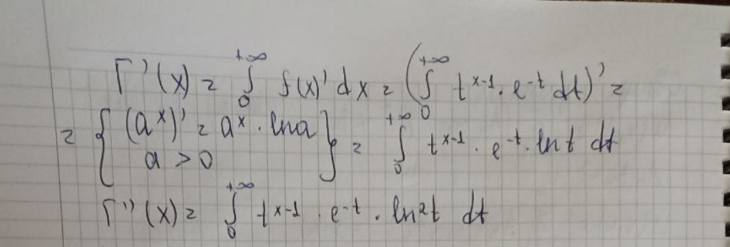 Γ'(x) = ∫₀^{+∞} f(x)' dx = (∫₀^{+∞} t^{x-1} · e^{-t} dt)' =
= { (a^x)' = a^x · ln a, a > 0 } = ∫₀^{+∞} t^{x-1} · e^{-t} · ln t dt
Γ''(x) = ∫₀^{+∞} t^{x-1} · e^{-t} · ln²t dt